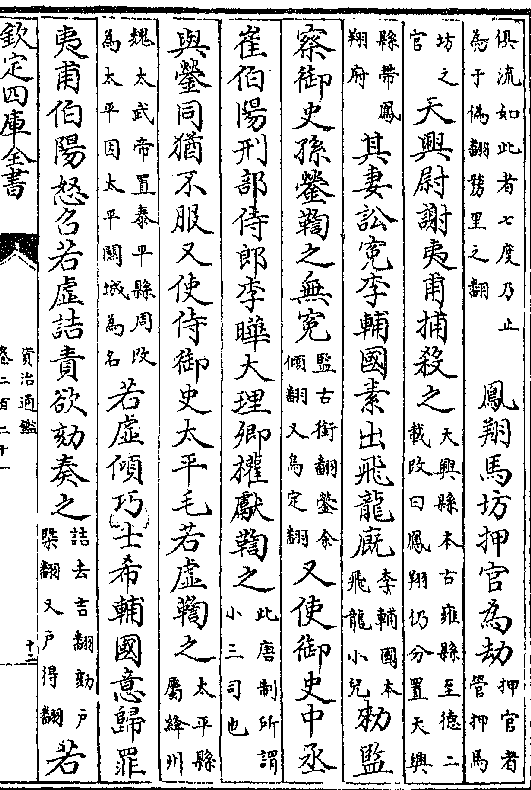 俱流如此者七度乃止
為于偽翻里之翻
鳳翔馬坊押官為劫
押官者
管押馬
坊之
官
天興尉謝夷甫捕殺之
天興縣本古雍縣至德二
載改曰鳳翔仍分置天興
縣帶鳳
翔府
其妻訟寃李輔國素出飛龍廐
李輔國本
飛龍小兒
敕監
察御史孫鎣鞫之無寃
監古銜翻鎣余
傾翻又烏定翻
又使御史中丞
崔伯陽刑部侍郎李曄大理卿權獻鞫之
此唐制所謂
小三司也
與鎣同猶不服又使侍御史太平毛若虛鞫之
太平縣
屬絳州
魏太武帝置泰平縣周改
為太平因太平關城為名
若虛傾巧士希輔國意歸罪
夷甫伯陽怒召若虛詰責欲劾奏之
詰去吉翻劾戶
槩翻又戶得翻
若
欽定四庫全書
資治通鑑
卷二百二十一
十二